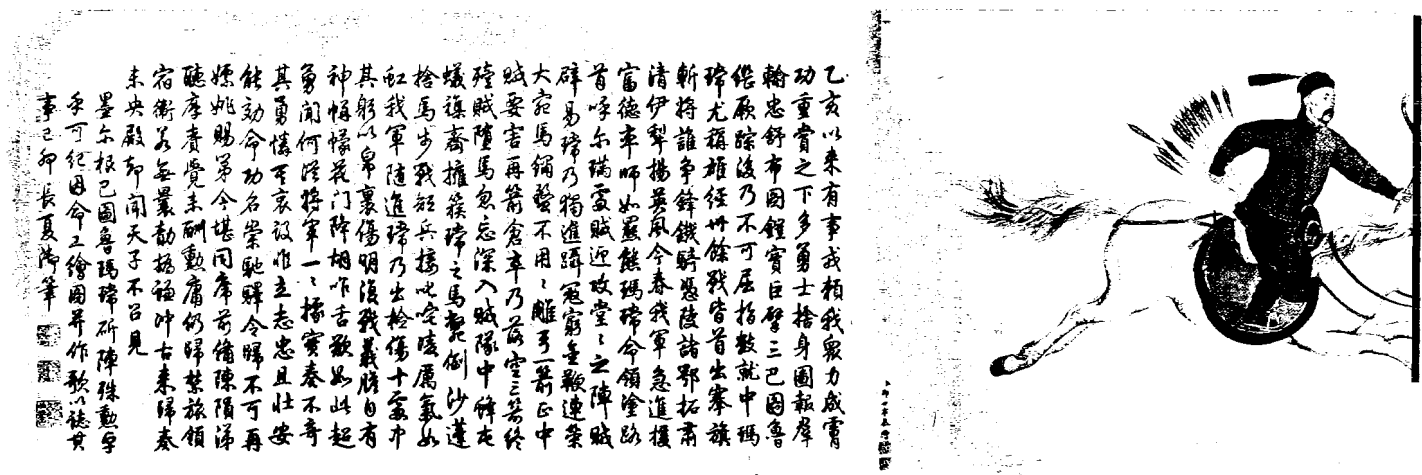 乙亥以來有事戎賴我眾力成膚
功重賞之下多勇士捨身圖報羣
翰忠舒布圖鎧實巨擘三巴圖魯
繼厥踪後乃不可屈指數就中瑪
瑺尤稱雄經卅餘戰皆首出搴旗
斬將誰爭鋒鐵騎憑陵諸鄂拓肅
清伊犁揚英風今春我軍急進援
富德率師如羆熊瑪瑺命領塗路
首呼尔璊處賊迎攻堂〻之陣賊
辟易瑺乃獨進躡冦窮鞭連
大宛馬鍪不用〻雕弓一箭正中
賊要害再箭倉卒乃落空三箭終
殪賊墮馬忽忘深入賊隊中鋒屯
蟻齊擁簇瑺之馬斃倒沙蓬
捨馬步戰短兵接叱咤凌厲氣如
虹我軍隨進瑺乃出檢傷十處中
其躬以帛裹傷明復戰義膽自有
神幈幪花門降胡咋舌歎如此超
勇聞何從將軍一〻據實奏不奇
其勇憐至衷設惟立志忠且壯安
能効命功名崇馳驛令歸不可再
嫖姚賜第今堪同席前備陳隕涕
聽厚賚覺未酬勳庸仍歸禁旅領
宿衛若無曩勣撝謙沖古來歸奏
未央殿却聞天子不召見
墨尔根巴圖魯瑪瑺斫陣殊勳
乎可紀因命工繪圖并作歌以誌其
事己卯長夏御筆